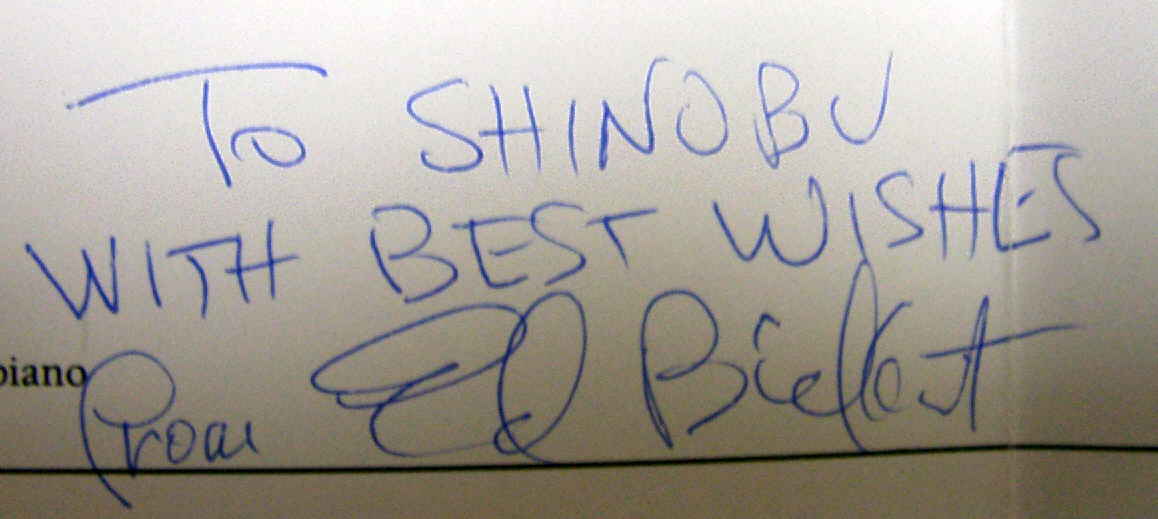 TO SHINOBU
WITH BEST WISHES
piano
From Ed Bickert